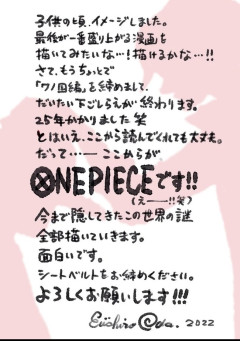 子供の頃、イメージしました。
最後が一番盛り上がる漫画を
描いてみたいな…!描けるかな…!!
さて、もうちょっとで
「ワノ国編」を締めまして、
だいたい下ごしらえが終わります。
25年かかりました 笑
とはいえ、ここから読んでくれても大丈夫。
だって…── ここからが、
ONE PIECEです!!
(えーー!!笑)
今まで隠してきたこの世界の謎
全部描いていきます。
面白いです。
シートベルトをお締めください。
よろしくお願いします!!!
Eiichiro Oda. 2022